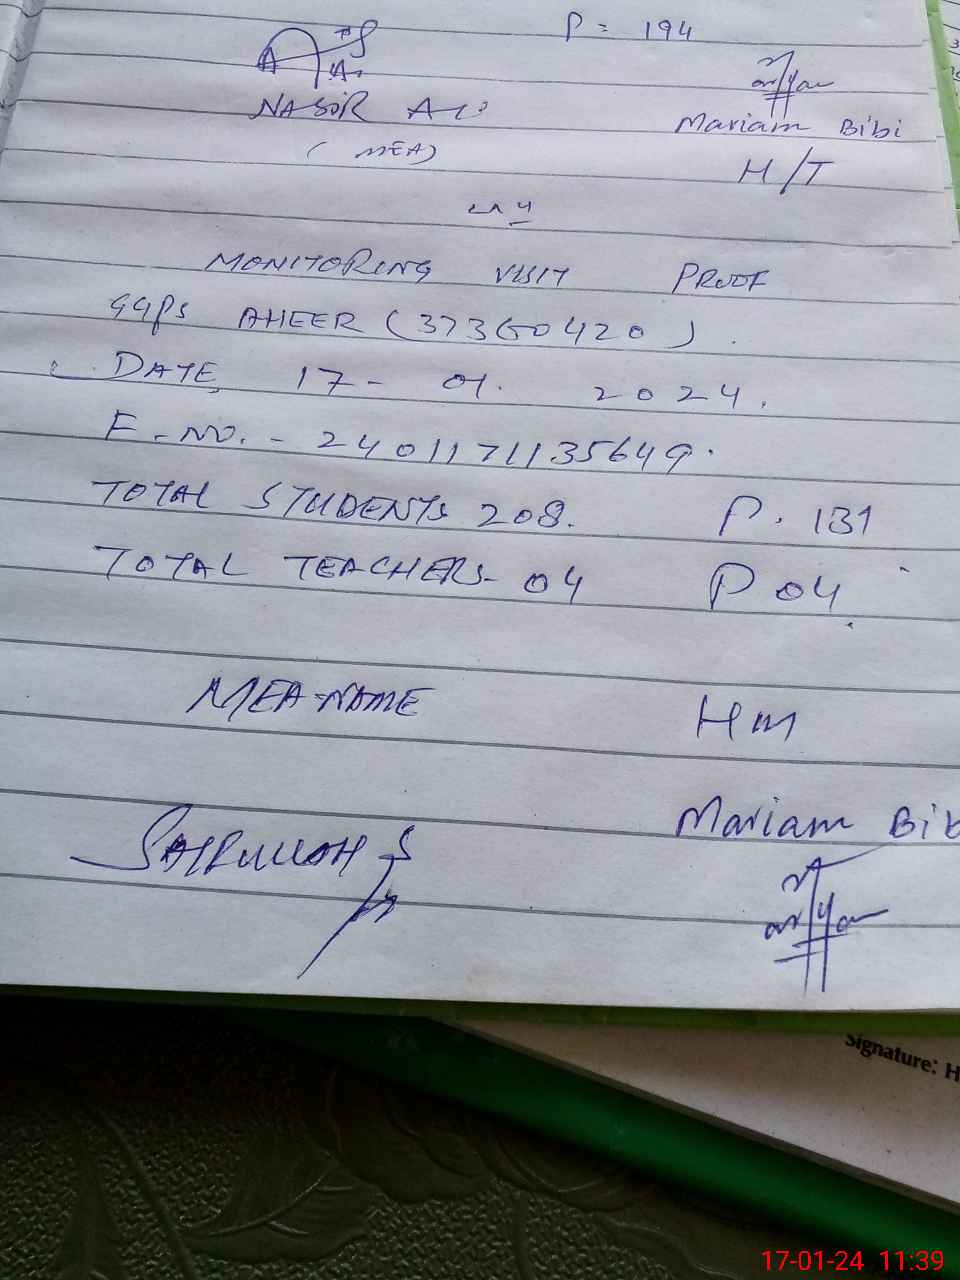 P = 194
NASIR ALi
(MEA)
Mariam Bibi
H/T
MONITORING VISIT PROOF
GGPS AHEER (37360420)
DATE 17-01-2024.
E-NO. - 2401171135649.
TOTAL STUDENTS 208. P. 131
TOTAL TEACHERS- 04 P 04
MEA-NAME HM
SAIFULLAH Mariam Bib
Signature: H
17-01-24 11:39